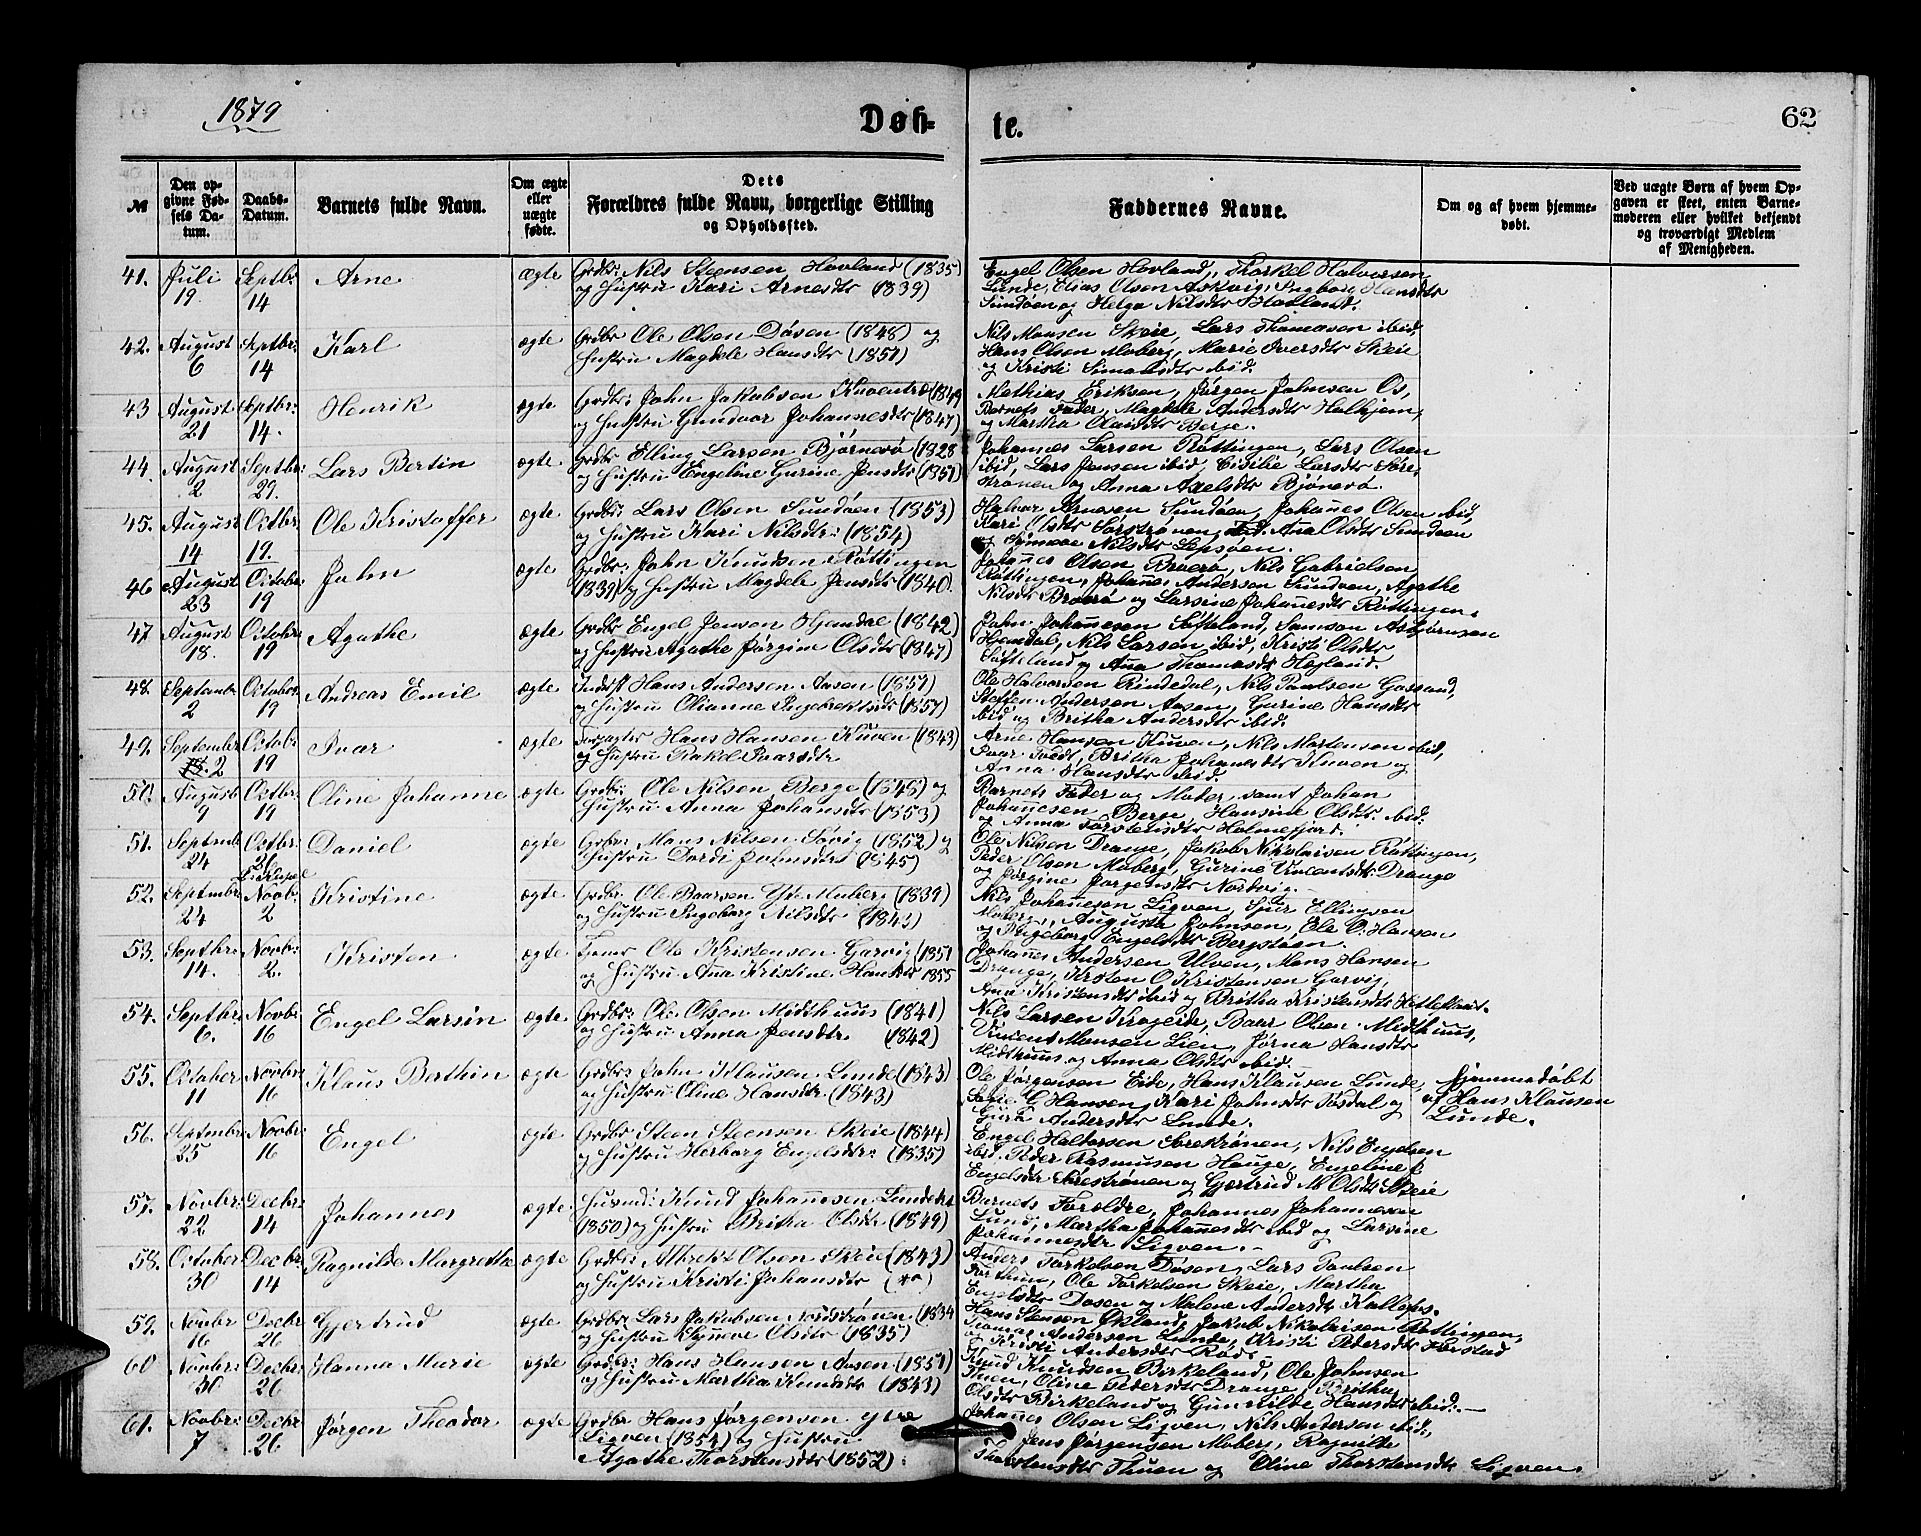 1879
Døb-
te.
62
№
Den op-
givne Fød-
sels Da-
tum.
Daabs-
Datum.
Barnets fulde Navn.
Om ægte
eller
uægte
fødte.
Dets
Forældres fulde Navn, borgerlige Stilling
og Opholdssted.
Faddernes Navne.
Om og af hvem hjemme-
døbt.
Ved uægte Børn af hvem Op-
gaven er skeet, enten Barne-
moderen eller hvilket bekjendt
og troværdigt Medlem
af Menigheden.
41. Juli 19. Septbr: 14 Arne ægte
Grdbr: Nils Steensen Hovland (1835)
og Hustru Kari Arnesdtr (1839)
Engel Olsen Hovland, Torkel Halvorsen
Lunde, Elias Olsen Askvig, Ingbor: Hansdtr
Sundøen og Helga Nilsdtr Hovland.
42. August 6 Septbr: 14 Karl ægte
Grdbr Ole Olsen Døsen (1848) og
Hustru Magdele Hansdtr (1851)
Nils Monsen Skeie, Lars Thomasen ibid,
Hans Olsen Moberg, Marie Iversdtr Skeie
og Kristi Simonsdtr ibid.
43 August 21 Septbr: 14. Henrik ægte
Grdbr: John Jakobsen Kuventræ (1849
og Hustru Gundvor Johannesdtr (1847)
Mathias Eriksen, Jørgen Johnsen Os,
Barnets Fader, Magdele Andersdtr Halhjem,
og Martha Olaisdtr Berge.
44. August 2 Septbr: 29. Lars Bertin ægte
Grdbr Elling Larsen Bjørnerø (1828
og Hustru Engeline Gurine Jensdtr (1851)
Johannes Larsen Røttingen, Lars Olsen
ibid, Lars Jensen ibid, Cisilie Larsdtr Søre
Strønen og Anna Axelsdtr Bjønerø.
45. August 14 Octbr. 19. Ole Kristoffer ægte
Grdbr: Lars Olsen Sundøen (1853)
og Hustru Kari Nilsdtr: (1854)
Halvor Arnesen Sundøen, Johannes Olsen ibid,
Kari Olsdtr Sørstrønen, Ana Olsdtr Sundøen
og Synneve Nilsdtr Lepsøen.
46 August 23 October 19 John ægte
Grdbr: John Knudsen Røttingen
(1839) og Hustru Magdele Jensdtr (1840.
Johanes Olsen Broerø, Nils Gabrielsen
Røttingen, Johanes Andersen Sundøen, Agathe
Nilsdtr Broerø og Larsine Johanesdtr Røttingen.
47. August 18. Octobr. 19 Agathe ægte
Grdbr Engel Jensen Hjemdal (1842)
og Hustru Agathe Jørgine Olsdtr (1847)
John Johanesen Søfteland, Samson Asbjørnsen
Hjemdal, Nils Larsen ibid, Kristi Olsdtr
Søfteland og Ana Thomasdtr Hegland.
48. Septembr 2 October 19 Andreas Emil ægte
Inderst Hans Andersen Aasen (1851)
og Hustru Olianne Ingebrektsdtr (1857)
Ole Halvorsen Rindedal, Nils Paulsen Gaasand,
Steffen Andersen Aasen, Gurine Hansdtr
ibid og Britha Andersdtr ibid.
49. September 2 Octobr 19 Ivar ægte
Forpagter Hans Hansen Kuven (1843)
og Hustru Rakel Ivarsdtr
Arne Hansen Kuven, Nils Mortensen ibid,
Ivar Tvedt, Britha Johanesdtr Kuven og
Anna Hansdtr ibid.
50. August 9 Octbr: 19 Oline Johanne ægte
Grdbr: Ole Nilsen Berge (1845) og
Hustru Anna Johansdtr (1853)
Barnets Fader og Moder, samt Johan
Johanesen Berge, Hansine Olsdtr: ibid:
og Anna Torstensdtr Holmefjord.
51. Septembr 24 Octbr: 26 Daniel ægte
Grdbr: Mons Nilsen Søvig (1852) og
Hustru Dordi Johnsdtr (1845)
Ole Nilsen Drange, Jakob Nikolaisen Røttingen,
Peder Olsen Moberg, Gurine Vincentsdtr Drange
og Jørgine Jørgensdtr Nordvig.
52. Septembr 24 Novbr. 2 Kristine ægte
Grdbr Ole Baarsen Ytre Moberg (1839)
og Hustru Ingeborg Nilsdtr (1843)
Nils Johanesen Ligven, Sjur Ellingsen
Moberg, Augusta Johnsen, Ole O. Hansen
og Ingeborg Engelsdtr Bergstøen.
53. Septbr: 14. Novbr: 2. Kristen ægte
Tjener Ole Kristensen Garvig (1851
og Hustru Ana Kristine Hansdtr 1855
Johanes Andersen Ulven, Mons Hansen
Drange, Kristen O Kristensen Garvig,
Ana Kristensdtr ibid og Britha Kristensdtr Hetleflaat.
54. Septbr: 6. Novbr: 16 Engel Larsin ægte
Grdbr: Ole Olsen Midthuus (1841)
og Hustru Anna Jensdtr. (1842)
Nils Larsen Kragerde, Baar Olsen Midthuus,
Vincent Monsen Lien, Jørna Hansdtr
Midthuus og Anna Olsdtr ibid.
55. October 11 Novbr: 16 Klaus Berthin ægte
Grdbr: John Klausen Lunde (1843)
og Hustru Oline Hansdtr. (1843)
Ole Jørgensen Eide, Hans Klausen Lunde,
Sofie C Hansen, Kari Johnsdtr Tøsdal og
Guri Andersdtr Lunde.
hjemmedøbt
af Hans Klausen
Lunde.
56. Septembr: 25 Novbr: 16 Engel ægte
Grdbr Steen Steensen Skeie (1844)
og Hustru Herborg Engelsdtr: (1835)
Engel Haldorsen Sørestrønen, Nils Engelsen
ibid. Peder Rasmusen Hauge, Engeline
Engelsdtr Sørestrønen og Gjertrud M. Olsdtr Skeie
57. Novbr: 22 Decbr: 14 Johannes ægte
Husmd: Knud Johannesen Lunde
(1850) og Hustru Britha Olsdtr (1849)
Barnets Forældre, Johannes Johannesen
Lund, Martha Johanesdtr ibid og Larsine
Johannesdtr Ligven.
58. October 30 Decbr: 14 Ragnilde Margrethe ægte
Grdbr: Albrekt Olsen Skeie (1843)
og Hustru Kristi Johansdtr
Anders Torkelsen Døsen, Lars Paulsen
Tøthun, Ole Torkelsen Skeie, Martha
Engelsdtr Døsen og Malene Andersdtr
59. Novbr 16 Decbr 26 Gjertrud ægte
Grdbr: Lars Jakobsen Nordstrønen (1834
og Hustru Synneve Olsdtr (1835)
Hans Stenson Økland, Jakob Nikolaisen Røttingen,
Tomas Andersen Lunde, Kristi Pedersdtr
og Kristi Andersdtr Rød.
60 Novbr: 30 Decbr: 26 Hanna Marie ægte
Grdbr: Hans Hansen Aasen (1851)
og Hustru Martha Knudsdtr (1843)
Knud Knudsen Birkeland, Ole Johnsen
Tuen, Oline Pedersdtr Drange, Britha
Olsdtr Birkeland og Gunhilde Hansdtr ibid:
61. Novbr: 7 Decbr 26 Jørgen Theodor ægte
Grdbr Hans Jørgensen ytre
Ligven (1854) og Hustru
Agathe Thorstensdtr (1852).
Johanes Olsen Ligven, Nils Andersen ibid:,
Jens Jørgensen Moberg, Ragnilde
Thorstensdtr Thuen og Oline Thorstensdtr Ligven.